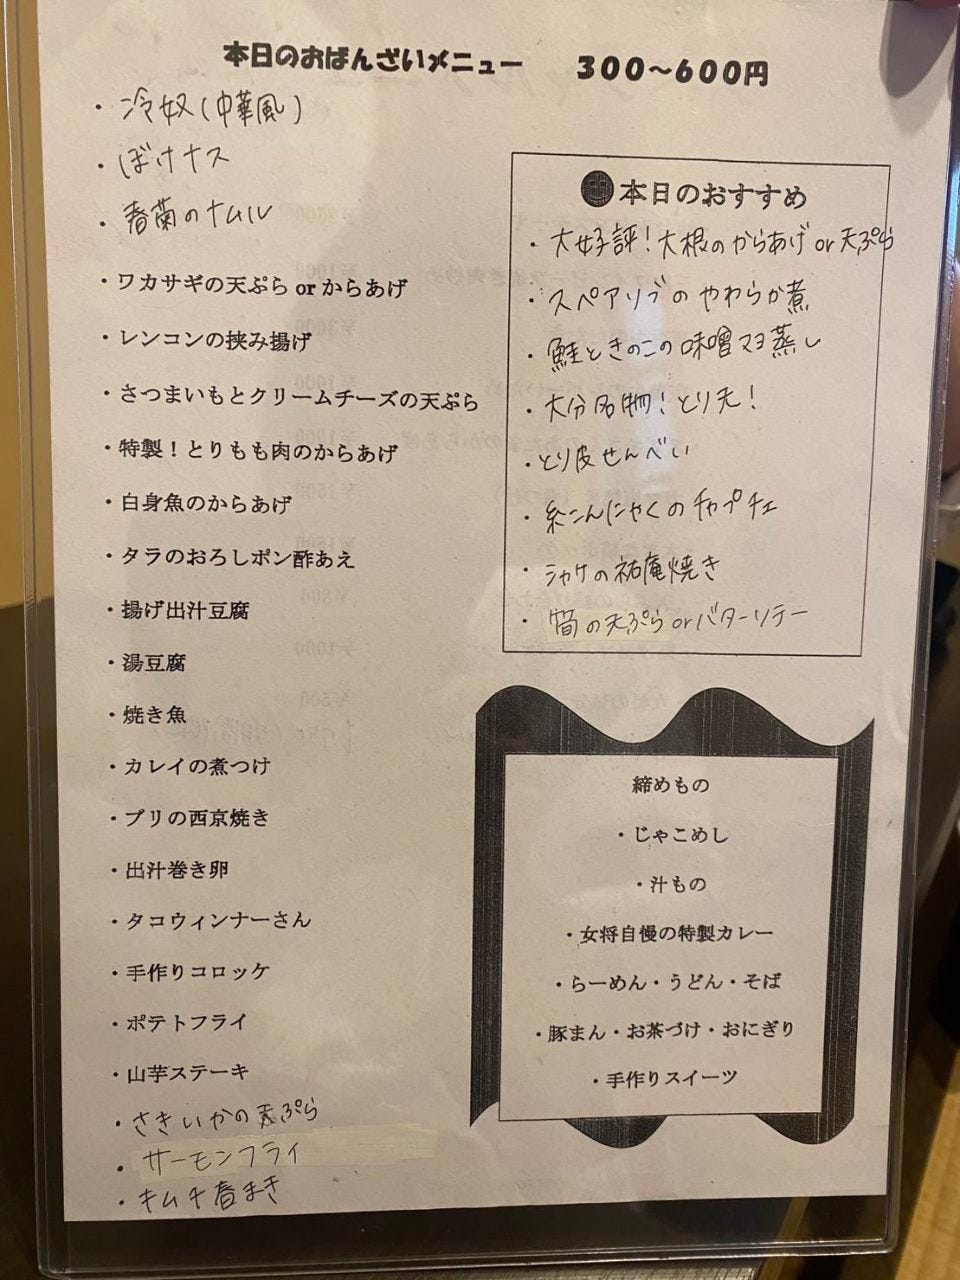 本日のおばんざいメニュー 300～600円
・冷奴(中華風)
・ぼけナス
・春菊のナムル
・ワカサギの天ぷら or からあげ
・レンコンの挟み揚げ
・さつまいもとクリームチーズの天ぷら
・特製！とりもも肉のからあげ
・白身魚のからあげ
・タラのおろしポン酢あえ
・揚げ出汁豆腐
・湯豆腐
・焼き魚
・カレイの煮つけ
・ブリの西京焼き
・出汁巻き卵
・タコウィンナーさん
・手作りコロッケ
・ポテトフライ
・山芋ステーキ
・さきいかの天ぷら
・サーモンフライ
・キムチ春まき
本日のおすすめ
・大好評！大根のからあげor天ぷら
・スペアリブのやわらか煮
・鮭ときのこの味噌マヨ蒸し
・大分名物！とり天！
・とり皮せんべい
・糸こんにゃくのチャプチェ
・シャケの祐庵焼き
・筍の天ぷらorバターソテー
締めもの
・じゃこめし
・汁もの
・女将自慢の特製カレー
・らーめん・うどん・そば
・豚まん・お茶づけ・おにぎり
・手作りスイーツ